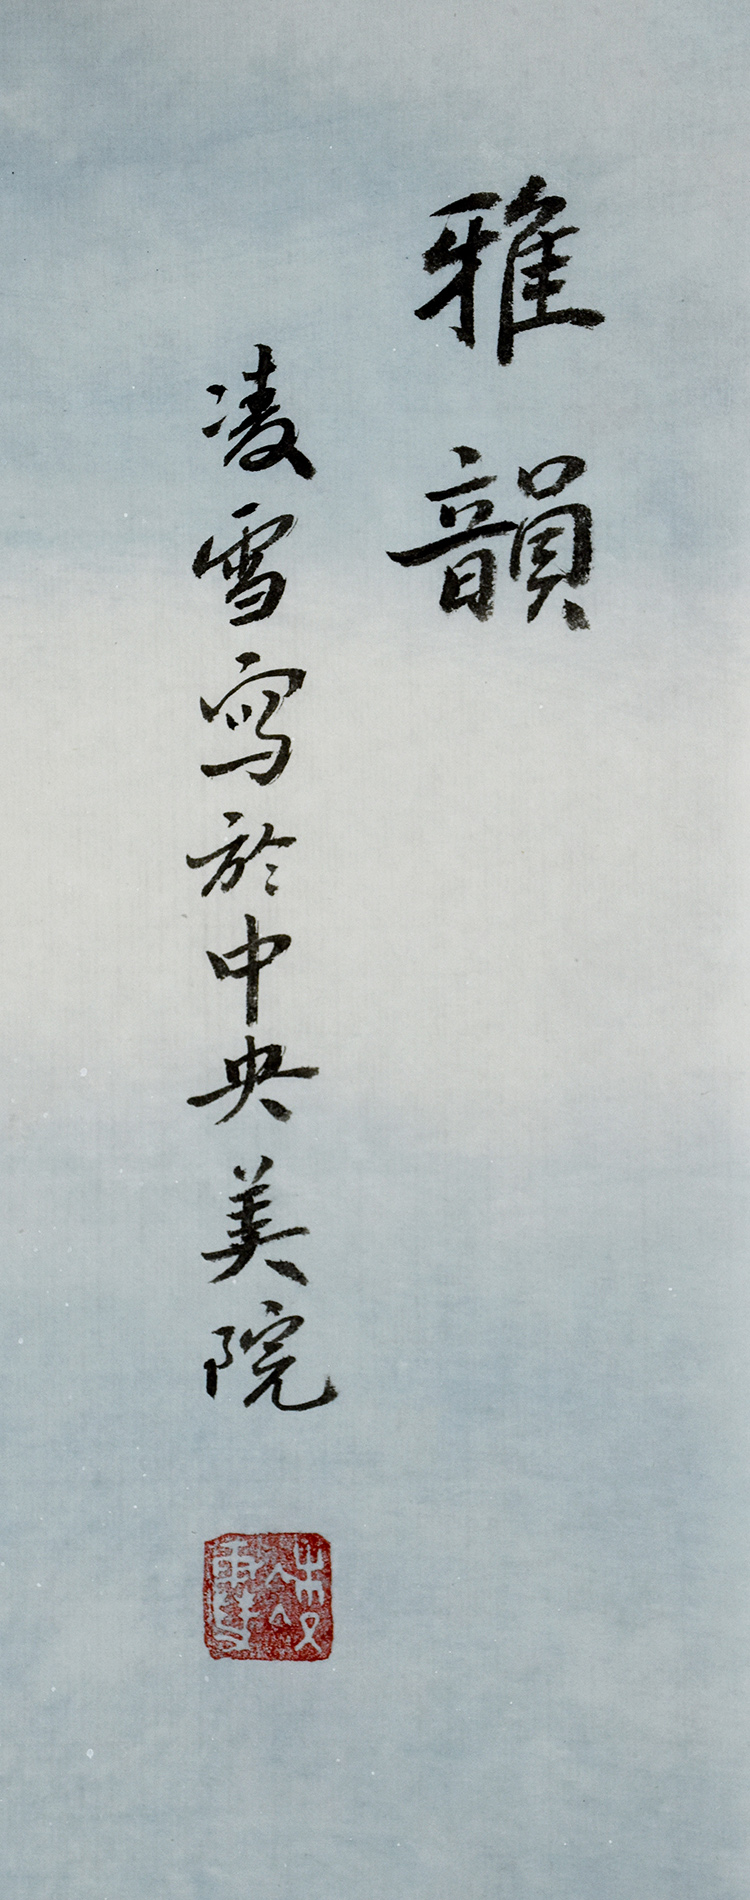 雅韻
凌雪寫於中央美院